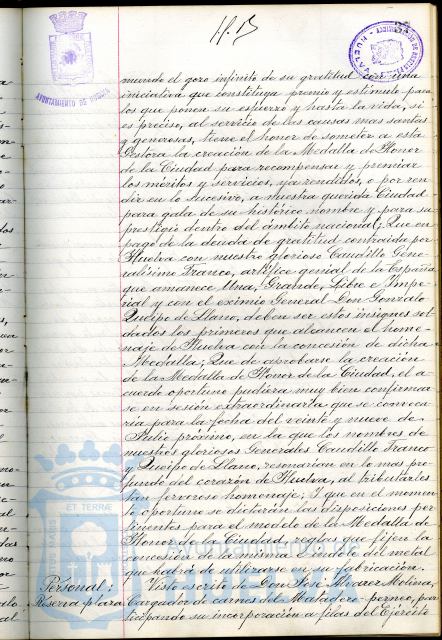 AYUNTAMIENTO DE HUELVA
mundo el gozo infinito de su gratitud con una
iniciativa que constituya premio y estímulo para
los que ponen su esfuerzo y hasta la vida, si
es preciso, al servicio de las causas mas santas
y generosas, tiene el honor de someter a esta
Gestora la creación de la Medalla de Honor
de la Ciudad para recompensar y premiar
los méritos y servicios, ya rendidos, o por ren-
dir en lo sucesivo, a nuestra querida Ciudad
para gala de su histórico nombre y para su
prestigio dentro del ámbito nacional; Que en
pago de la deuda de gratitud contraida por
Huelva con nuestro glorioso Caudillo Gene-
ralísimo Franco, artífice genial de la España
que amanece Una, Grande, Libre e Impe-
rial y con el eximio General Don Gonzalo
Queipo de Llano, deben ser estos insignes sol-
dados los primeros que alcancen el home-
naje de Huelva con la concesión de dicha
Medalla; Que de aprobarse la creación
de la Medalla de Honor de la Ciudad, el a-
cuerdo oportuno pudiera muy bien confirmar-
se en sesión extraordinaria que se convoca-
ria para la fecha del veinte y nueve de
Julio próximo, en la que los nombres de
nuestros gloriosos Generales Caudillo Franco
y Queipo de Llano, resonarian en lo mas pro-
fundo del corazón de Huelva, al tributarles
tan fervoroso homenaje; Y que en el momen-
to oportuno se dictarán las disposiciones per-
tinentes para el modelo de la Medalla de
Honor de la Ciudad, reglas que fijen la
concesión de la misma e indole del metal
que habrá de utilizarse en su fabricación.
Personal: Visto escrito de Don José Alvarez Molina,
Reserva plaza Cargador de carnes del Matadero, perneo, par-
ticipando su incorporación a filas del Ejército